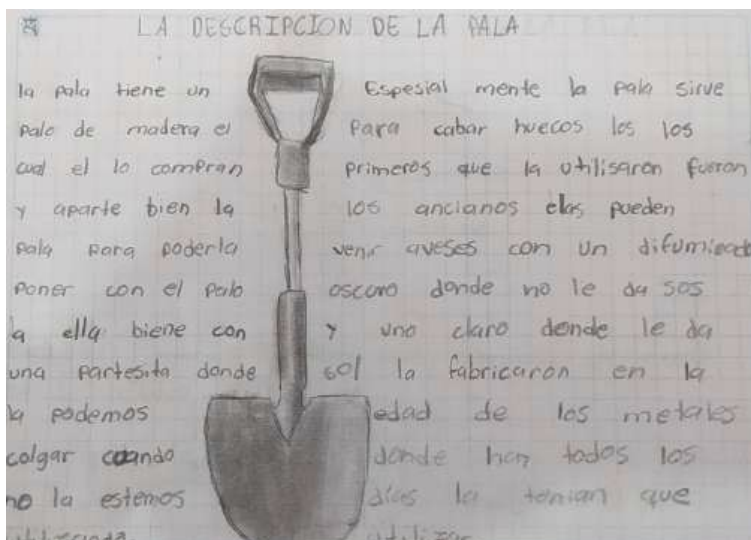 LA DESCRIPCION DE LA PALA
la pala tiene un
palo de madera el
cual el lo compran
y aparte bien la
pala para poderla
poner con el palo
a ella biene con
una partesita donde
la podemos
colgar cuando
no la estemos
Espesial mente la pala sirve
para cabar huecos los los
primeros que la utilisaron fueron
los ancianos elas pueden
venir aveses con un difumicado
oscuro donde no le da sos
y uno claro donde le da
sol la fabricaron en la
edad de los metales
donde han todos los
dias la tenian que
utilizar